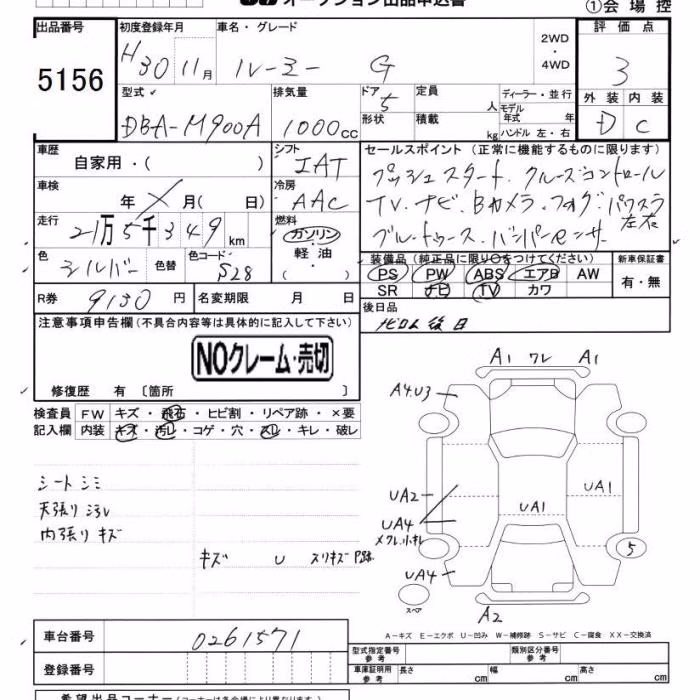 オークション出品申込書
①会場控
出品番号 初度登録年月 車名・グレード 2WD・4WD 評価点
5156 H30 11月 ルーミー G 3
型式 排気量 ドア 5 定員 人 ディーラー・並行 外装 内装
モデル年式 年
DBA-M900A 1000cc 形状 積載 kg ハンドル 左・右 D C
車歴 自家用・( ) シフト IAT セールスポイント(正常に機能するものに限ります)
プッシュスタート クルーズコントロール
車検 年 月( 日) 冷房 AAC TV.ナビ.Bカメラ.フォグ.パワスラ左右
走行 21万5千349km 燃料 ガソリン・軽油・( ) ブルートゥース.バンパーセンサー
色 シルバー 色替 色コード S28 装備品(純正品に限り○をつけてください) 新車保証書
PS PW ABS エアB AW 有・無
SR ナビ TV カワ
R券 9130円 名変期限 月 日 後日品
ナビロム後日
注意事項申告欄(不具合内容等は具体的に記入して下さい)
NOクレーム・売切
修復歴 有〔箇所 〕
検査員 FW キズ・飛石・ヒビ割・リペア跡・×要
記入欄 内装 キズ・汚レ・コゲ・穴・スレ・キレ・破レ
シートシミ
天張り汚レ
内張りキズ
キズ U スリキズ
A1 ワレ A1
A4.U3
UA2 UA1
UA1
UA4
UA4
5
スペア
A2
A-キズ E-エクボ U-凹み W-補修跡 S-サビ C-腐食 XX-交換済
車台番号 0261571
型式指定番号 参考 類別区分番号 参考
登録番号
車庫証明用 参考 長さ cm 幅 cm 高さ cm
希望出品コーナー(コーナーは各会場により異なります)